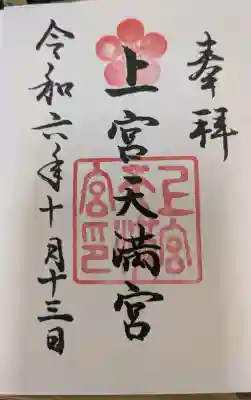 奉拝
上宮天満宮
令和六年十月十三日
上宮天満宮印